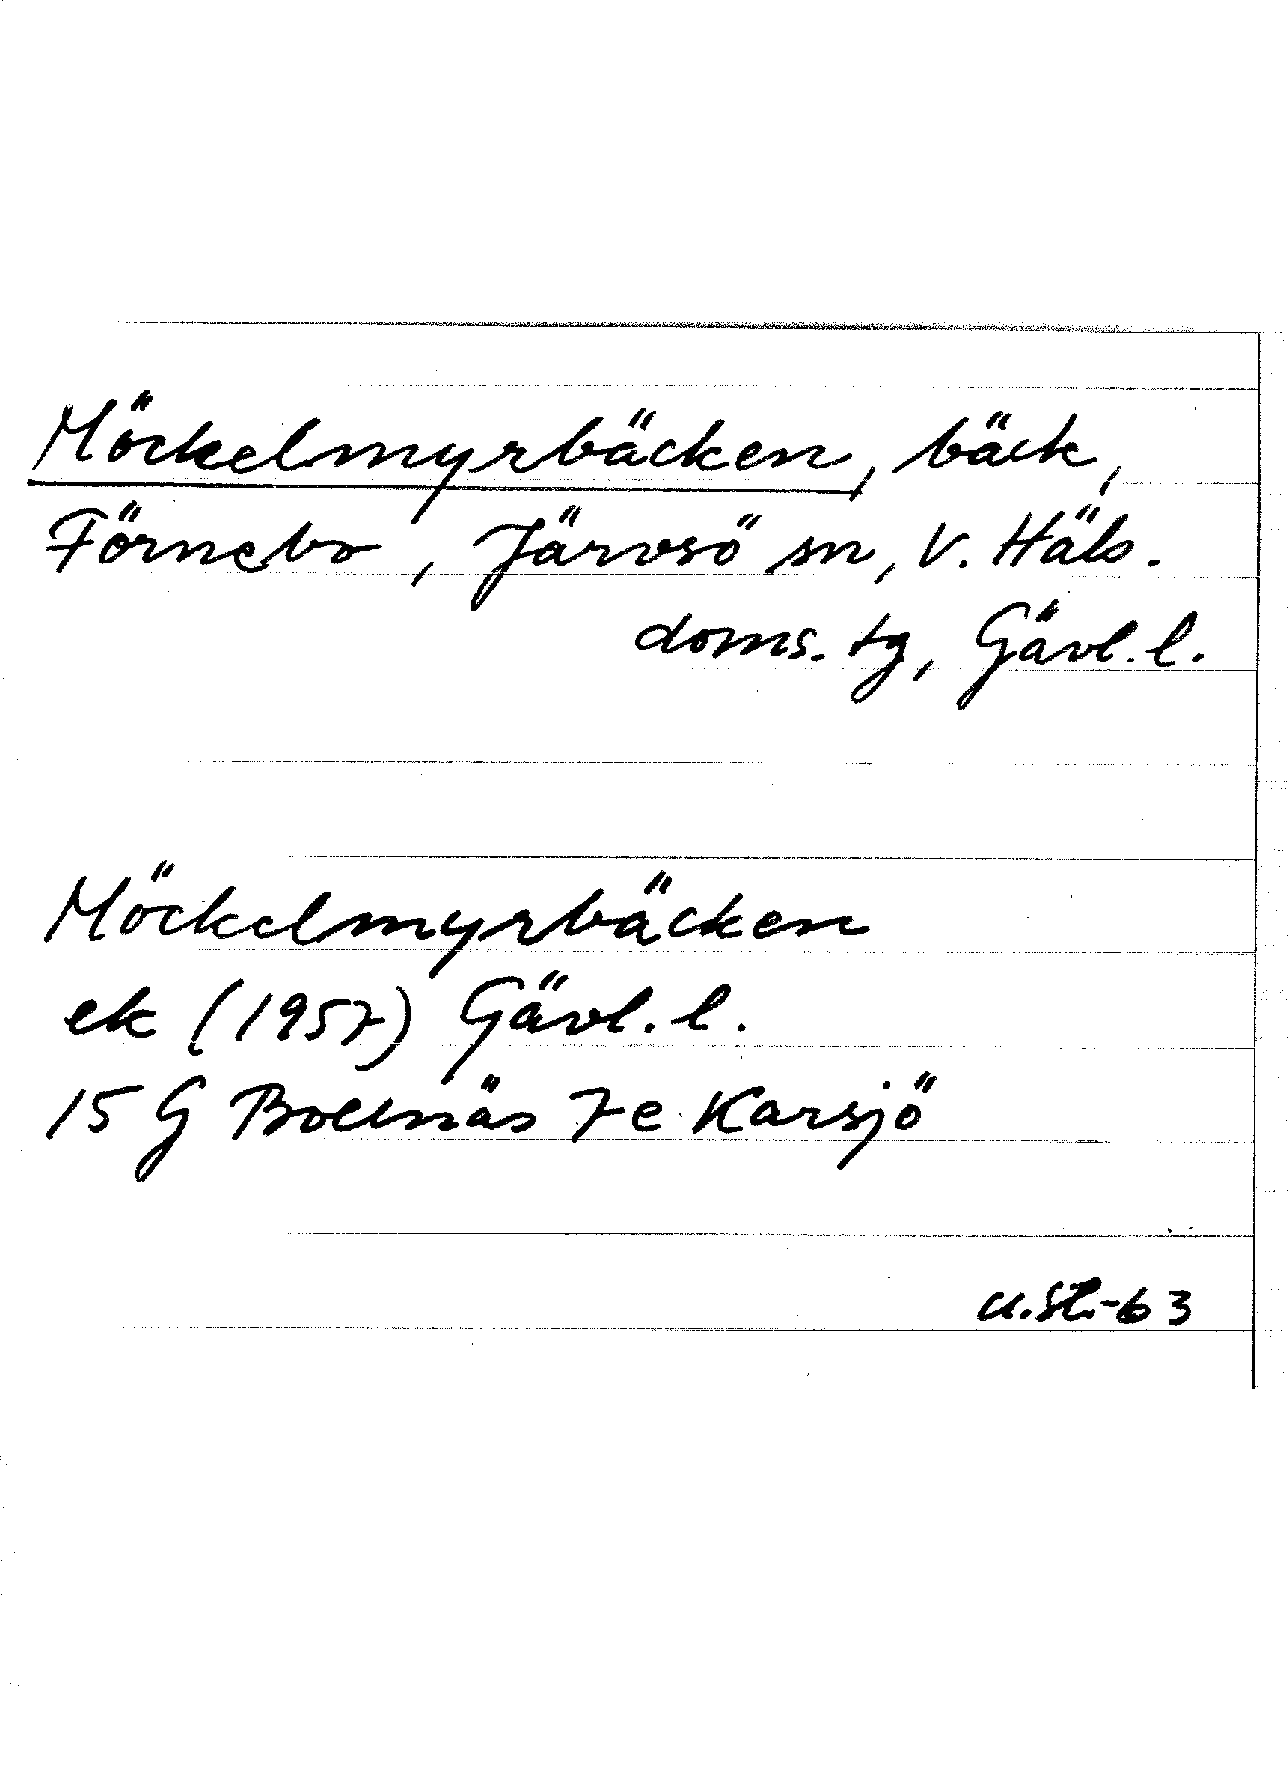 Möckelmyrbäcken, bäck,
Förnebo, Järvsö sn, V. Häls.
doms. tg, Gävl. l.
Möckelmyrbäcken
ek (1957) Gävl. l.
15 G Bollnäs 7e Karsjö
-63